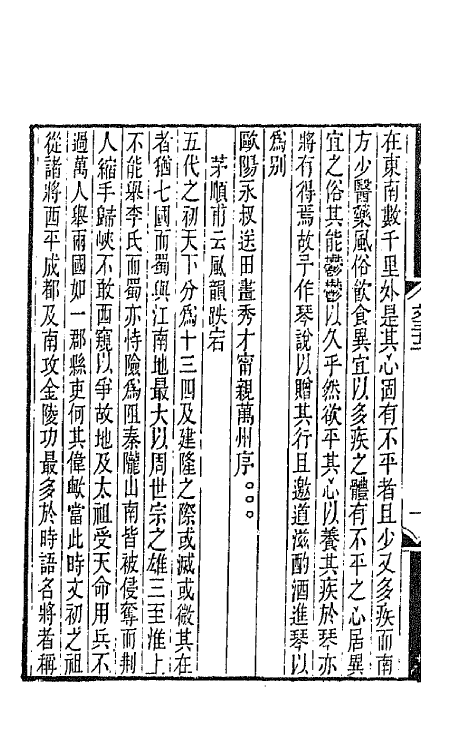 在東南數千里外是其心固有不平者且少又多疾而南
方少醫藥風俗飲食異宜以多疾之體有不平之心居異
宜之俗其能鬱鬱以久乎然欲平其心以養其疾於琴亦
將有得焉故予作琴說以贈其行且邀道滋酌酒進琴以
為别
歐陽永叔送田畫秀才甯親萬州序○○○
茅順甫云風韻跌宕
五代之初天下分為十三四及建隆之際或滅或微其在
者猶七國而蜀與江南地最大以周世宗之雄三至淮上
不能舉李氏而蜀亦恃險為阻秦隴山南皆被侵奪而荆
人縮手歸峽不敢西窺以爭故地及太祖受天命用兵不
過萬人舉兩國如一郡縣吏何其偉歟當此時文初之祖
從諸將西平成都及南攻金陵功最多於時語名將者稱